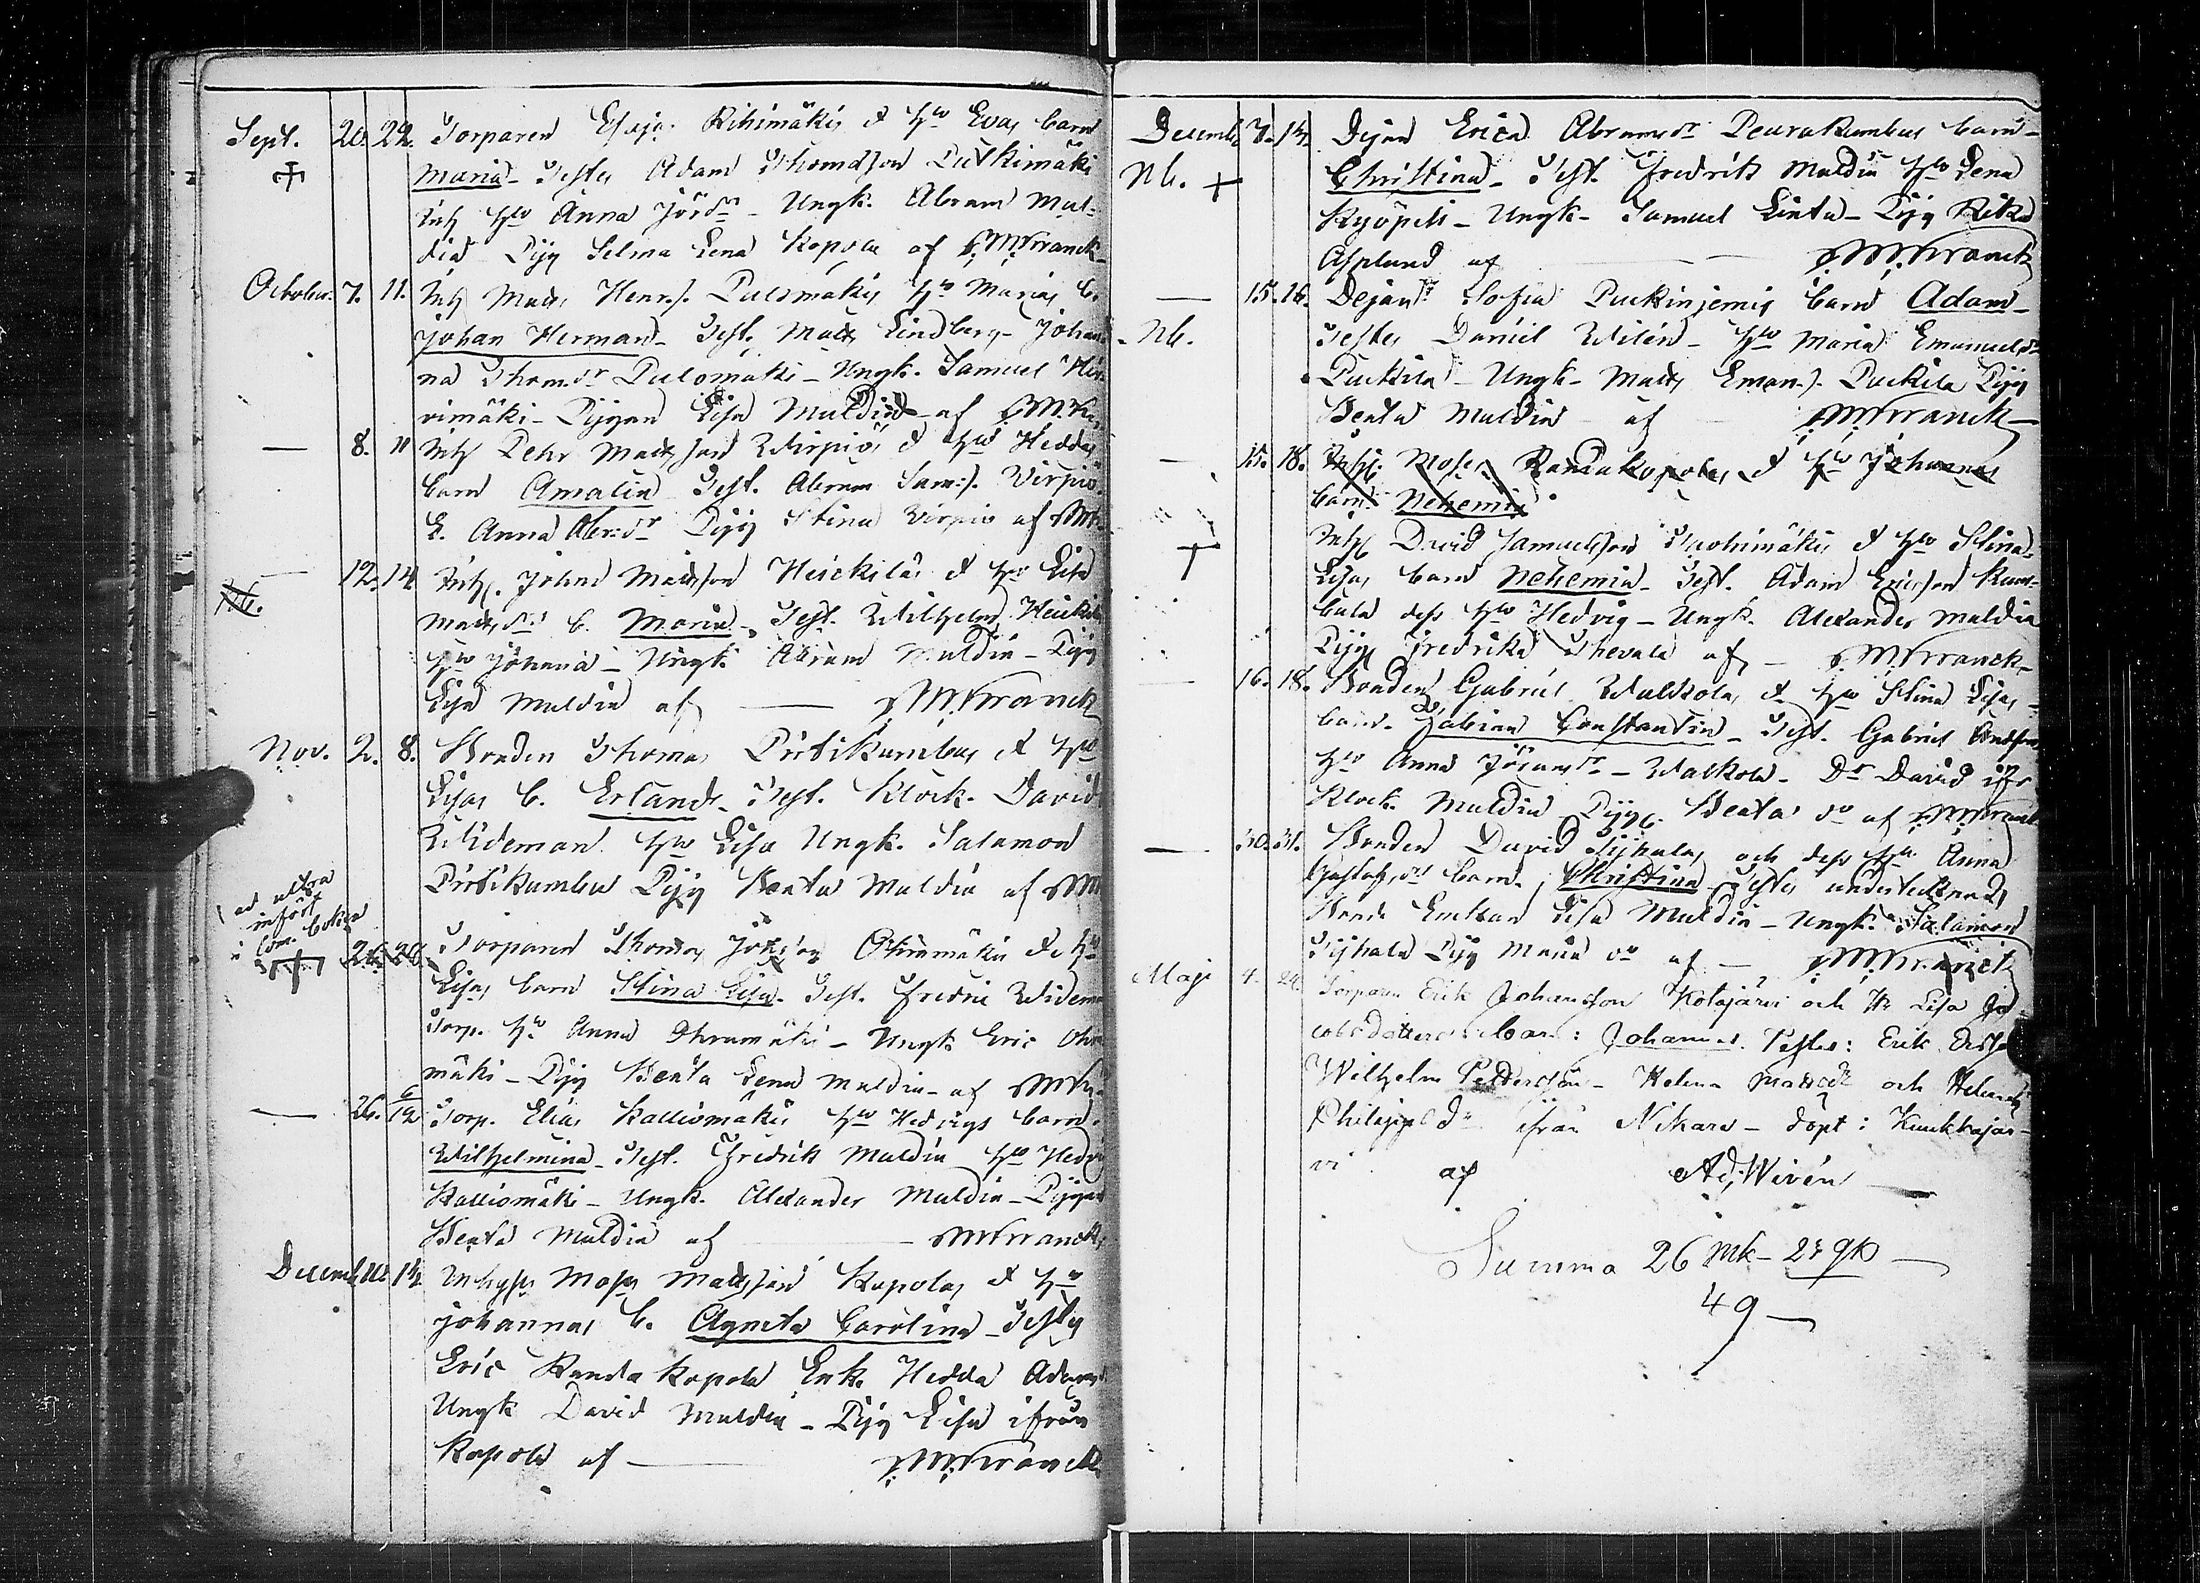 Sept. 20. 22. Torparen Esaja Rihimäkis & h:u Evas barn
Maria - Testes Adam Thomasson Putkimäki
Inh h:u Anna Jör.dr - Ungk. Abram Mul-
din Pig Selma Lena Kopola af M. Franck
October. 7. 11. Inh Matts Henr.s. Pulomäkis h:u Marias b.
Johan Herman - Test. Matts Lindberg - Johan
na Thom.dr Pulomäki - Ungk. Samuel
vimäki - Pigan Lisa Muldin af
— 8. 11 Inh Pehr Mattsson Wirpiös & h:u Heddas
barn Amalia Test. Abram Sam.s. Virpiö
E. Anna Abr.dr Pig Stina Virpiö af
— 12. 14 Inh. Johan Mattsson Heickiläs & h:u Lisa
Matts.dr b. Maria - Test. Wilhelm Heickilä
h:u Johanna - Ungk. Abram Muldin - Pig
Lisa Muldin af — M. Franck
Nov. 2. 8. Bonden Thomas Pirtikumbus & h:u
Lisas b. Erland - Test. Klock. David
Wideman h:u Lisa Ungk. Salamon
Pirtikumbu Pig Beata Muldin af
ad ultra
införd
i Com. boken
26. 28. Torparen Thomas Ohramäki & h:u
Lisas barn Stina Lisa - Test. Fredric Widema
Torp. h:u Anna Ohramäki - Ungk Eric Ohra
mäki - Pig Beata Lena Muldin - af
— 26. 6/12 Torp. Elias Kalliomäkis h:u Hedvigs barn
Wilhelmina - Test. Fredrik Muldin h:u Hedvi
Kalliomäki - Ungk. Alexander Muldin - Pigan
Beata Muldin af — M Franck
Decemb. Inhyses Moses Mattsson Kopolas & h:u
Johannas b. Agneta Carolina - Testes
Eric Randakopola Enk. Hedda Adams
Ungk David Muldin - Pig Lisa ifrån
Kopola af — M Franck
Decemb. 7. 14. Pigan Erica Abrams.dr Peurakumbus barn -
Nb. + Christina - Test. Fredrik Muldin h:u Lena
Kyöpeli - Ungk - Samuel Linta - Pig Rika
Asplund af — M. Franck
— 15. 16. Pigan Sofia Puckinjemis barn Adam -
- Nb. Testes Daniel Wilén - h:u Maria Emanuels.dr
Puckila - Ungk - Matts Eman.s. Puckila Pig
Beata Muldin af — M Franck -
— 15. 18. Inh. Moses Randakopolas & h:u Johannas
barn Nehemia
Inh David Samuelsson Savhimäkis & h:u Stina
Lisas barn Nehemia - Test. Adam Ericsson Kum-
bula dess h:u Hedvig - Ungk. Alexander Muldin
Pig Fredrika Thevala af — M. Franck -
— 16. 18. Bonden Gabriel Walkolas & h:u Stina Lisas -
barn - Sabina Constantin - Test. Gabriel
h:u Anna - Walkola - Dr David ifr
Klock. Muldin Pig. Beata do af M Franck
— 30. 31. Bonden David Sijkalas och dess h:u Anna
Gustafs.dr barn. Christina Testes undertecknad
Lisa Muldin - Ungk. Salamon
Sijkala Pig Maria do af — M. Franck
Maji 4. 24. Torparen Erik Johansson Kotajärvi och H: Lisa Ja-
cobsdotters barn: Johannes. Testes: Erik
Wilhelm Pettersson - Helena Matts.dr och Helena
Philipps Dr ifrån Nikara - döpt i Kuukkajär-
vi af Ad. Wivén —
Summa 26 mk - 23 qk —
49 —